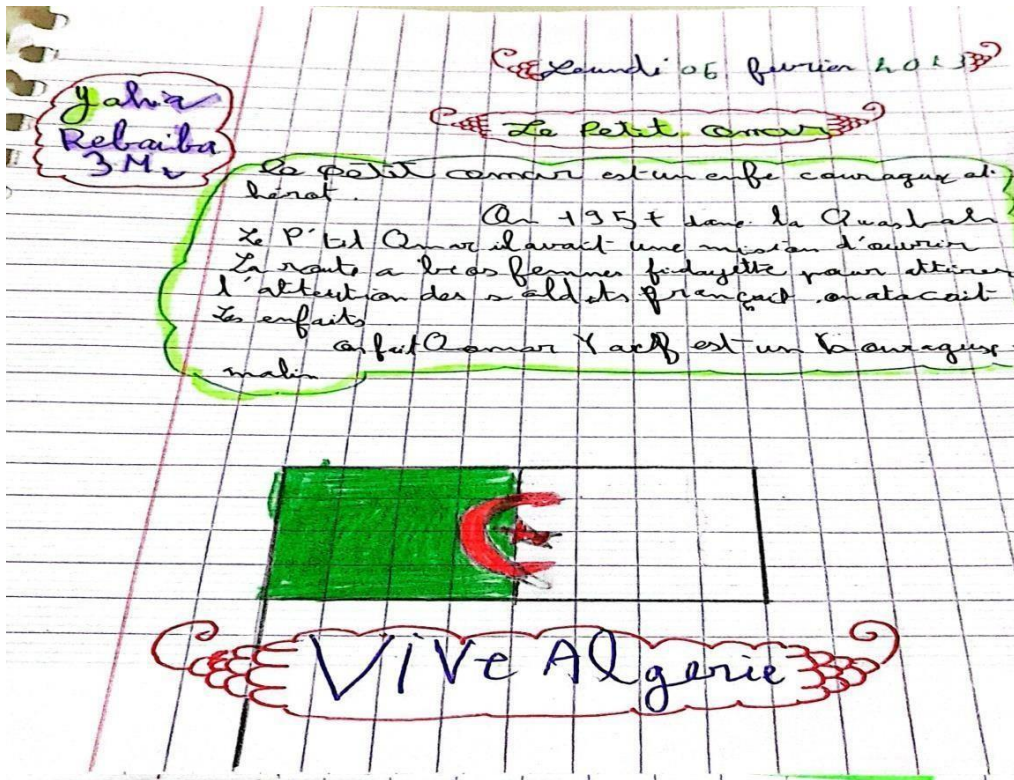 Yahia
Rebaiba
3M
Leundi 06 fevrier 2023
Le Petit omar
le petit omar est un enfe couragux et
hérot.
On 1957 dans la Quasbah
Le P'tit Omar il avait une mision d'ouvrir
La route a les femmes fidayette pour attirer
l'attention des soldats françact on atacait
Les enfaits
on fait Oomar Yacef est un couragusx
malin
ViVe Algerie